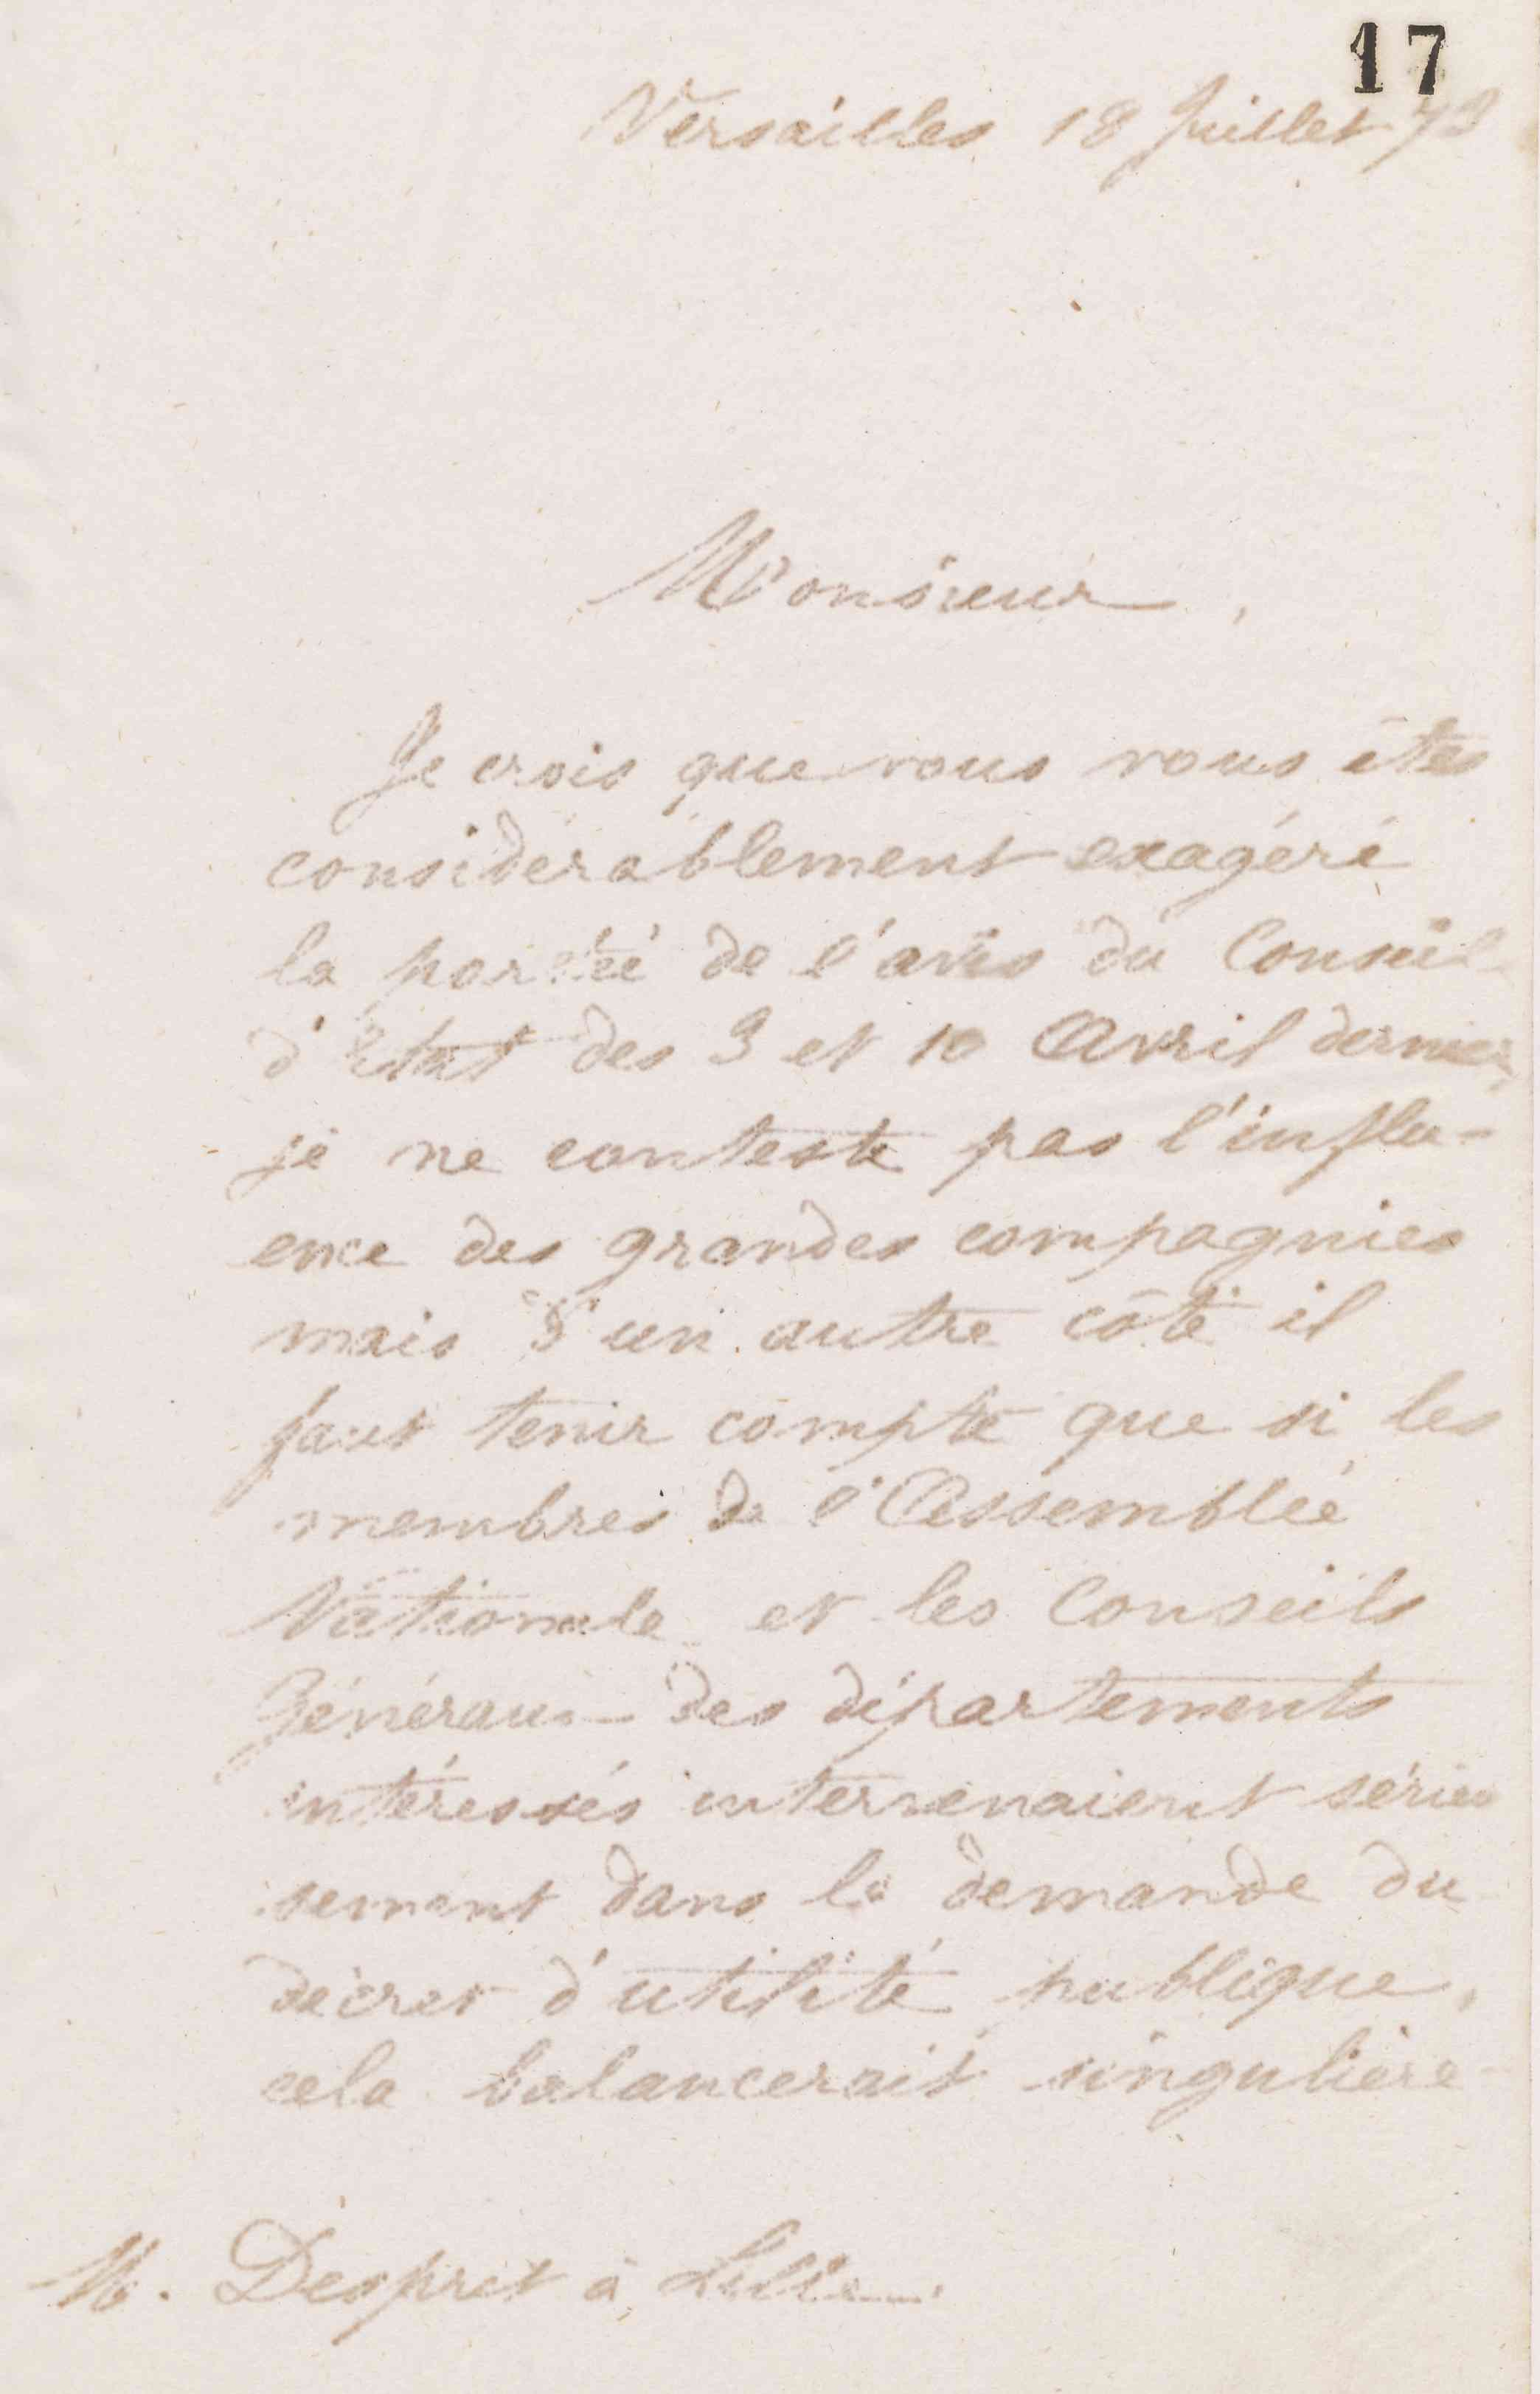 17
Versailles 18 Juillet 73
Monsieur,
Je crois que vous vous êtes
considérablement exagéré
la portée de l'avis du Conseil
d'Etat des 3 et 10 Avril dernier,
je ne conteste pas l'influ-
ence des grandes compagnies
mais d'un autre côté il
faut tenir compte que si les
membres de l'Assemblée
Nationale et les Conseils
Généraux des départements
intéressés intervenaient série
sement dans la demande du
décret d'utilité publique,
cela balancerait singulière-
M. Despret à Lille